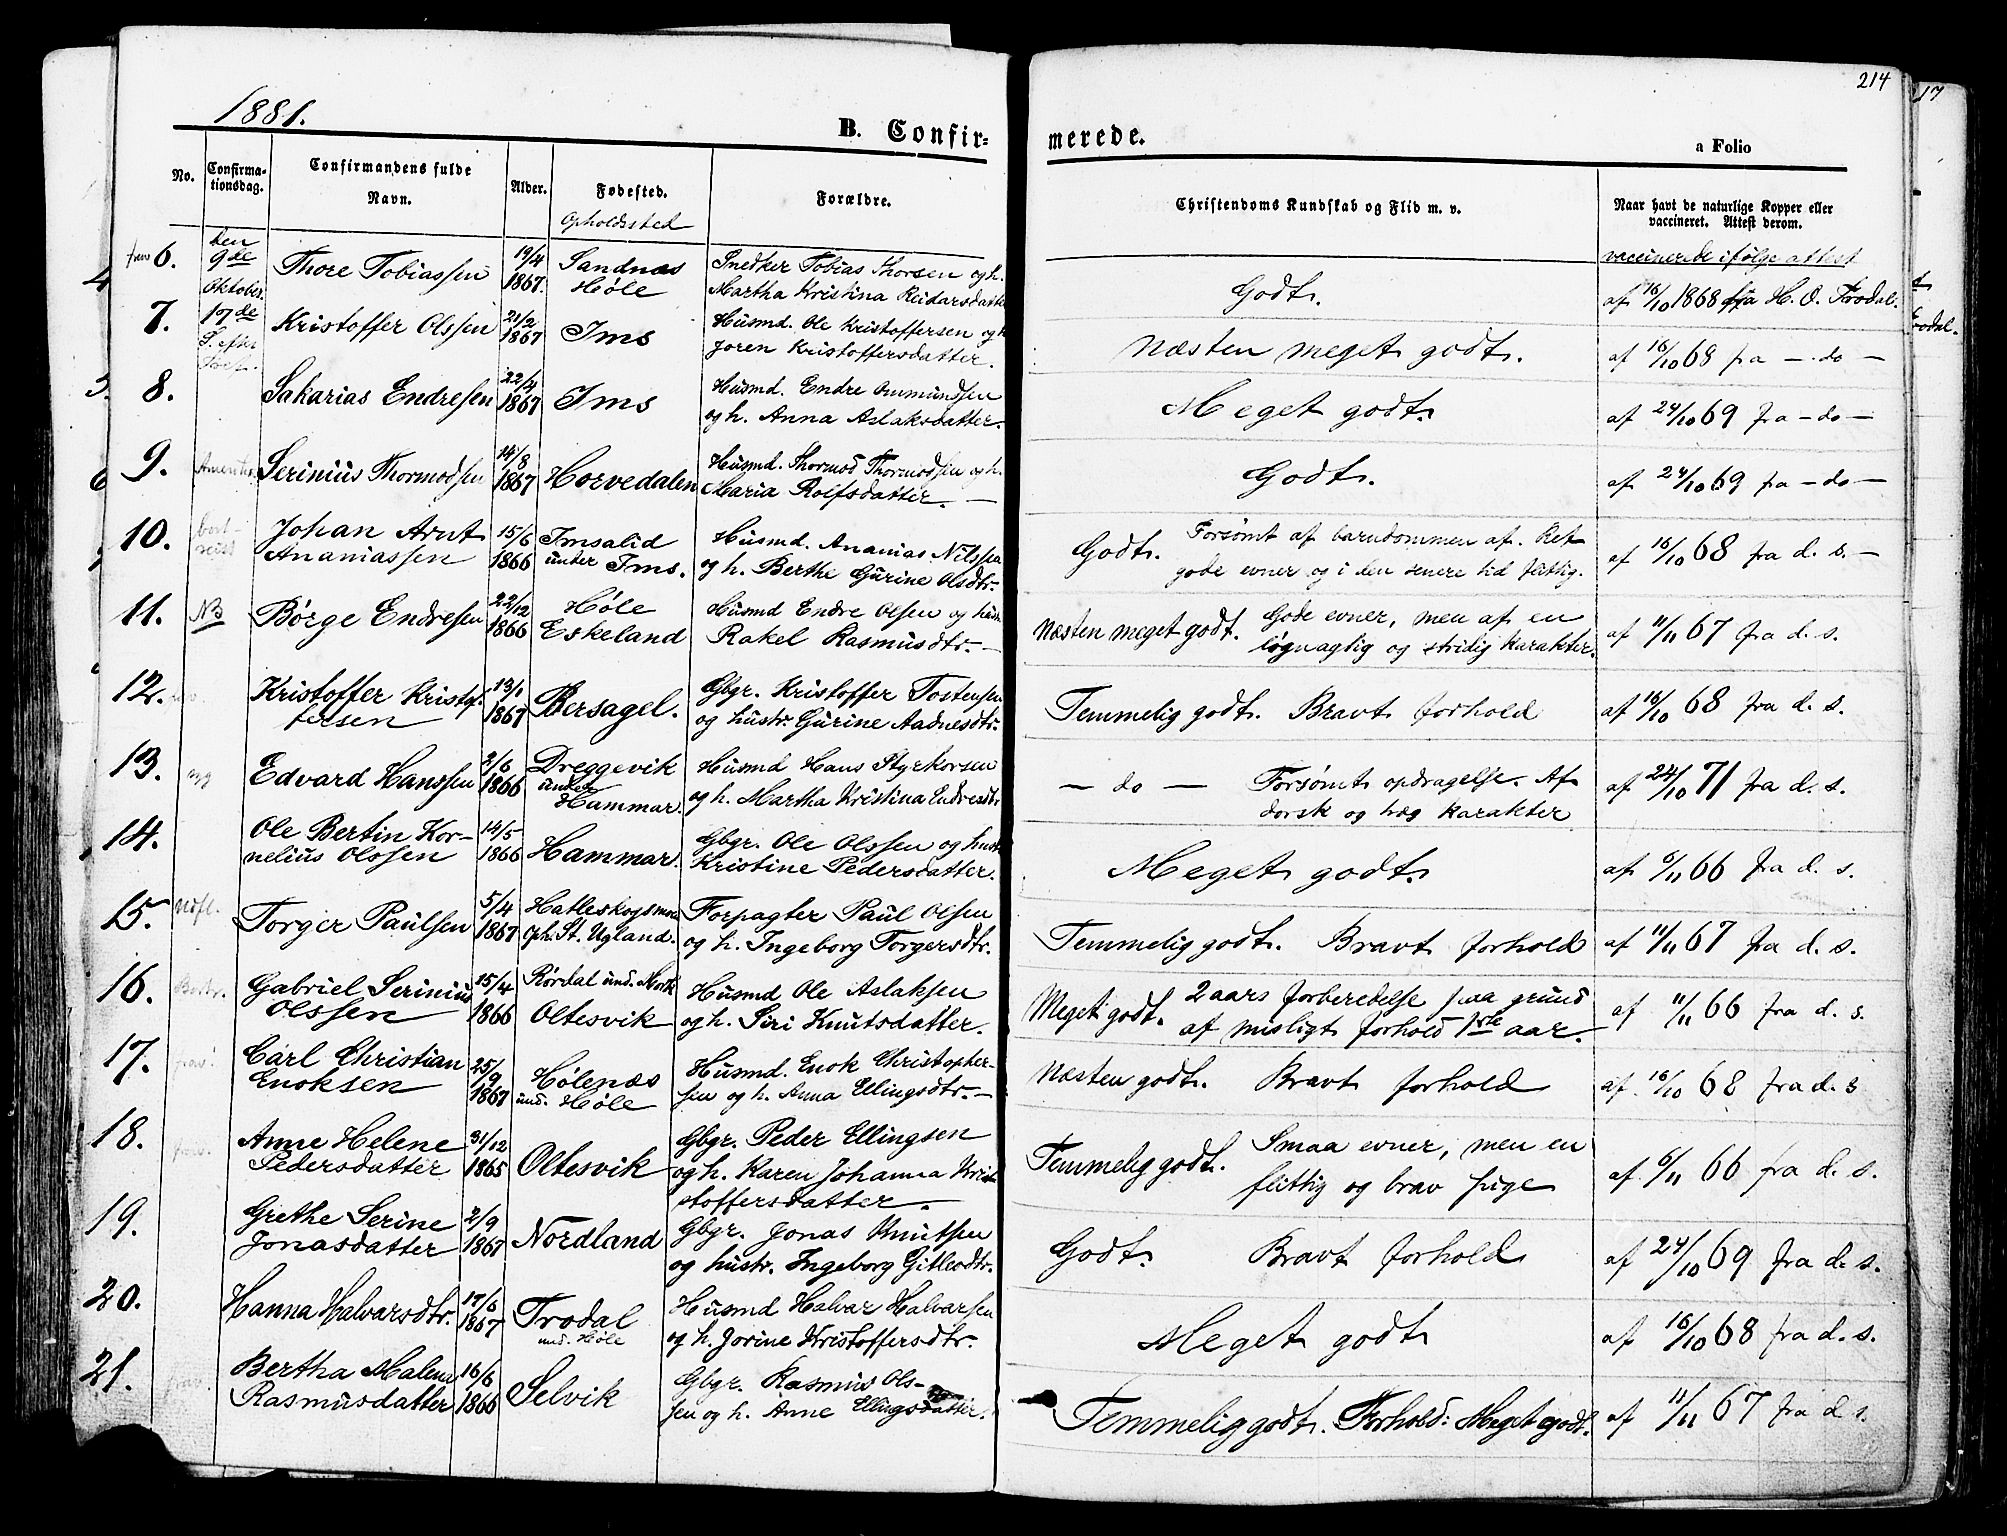 214
17
1881.
B. Confir=
merede.
a Folio
No.
Confirma-
tionsdag.
Confirmandens fulde
Navn.
Alder.
Fødested.
Opholdssted
Forældre.
Christendoms Kundskab og Flid m. v.
Naar havt de naturlige Kopper eller
vaccineret. Attest derom.
vaccinerede ifølge attest
6.
den
9de
Oktober
Thore Tobiassen
19/4
1867.
Sandnæs
Høle
Snedker Tobias Thorsen og h.
Martha Kristina Reidarsdatter
Godt.
af 16/10 1868 fra H. O. Trodal.
7.
17de
S. efter
Kristoffer Olssen
21/2
1867
Ims
Husmd. Ole Kristoffersen og h
Joren Kristoffersdatter.
Næsten meget godt.
af 16/10 68 fra — do —
8.
Sakarias Endresen
22/4
1867
Ims
Husmd. Endre Ommundsen
og h. Anna Aslaksdatter.
Meget godt.
af 24/10 69 fra — do —
9.
Serinius Thormodsen
14/8
1867
Horvedalen
Husmd. Thormod Thormodsen og h.
Maria Rolfsdatter. —
Godt.
af 24/10 69 fra — do —
10.
Johan Arnt
Ananiassen
15/6
1866
Imsalid
under Ims.
Husmd. Ananias Nilssen
og h. Berthe Gurine Olsdtr.
Godt. Forsømt af barndommen af. Ret
gode evner og i den senere tid flittig.
af 16/10 68 fra d. s. —
11.
NB
Børge Endresen
22/12
1866
Høle
Eskeland
Husmd Endre Olsen og hustr.
Rakel Rasmusdtr. —
Næsten meget godt. Gode evner, men af en
løgnagtig og stridig karakter.
af 11/11 67 fra d. s.
12.
Kristoffer Kristof-
fersen
13/1
1867
Bersagel.
Gbgr. Kristoffer Tostensen
og hustr. Gurine Aadnesdtr.
Temmelig godt. Bravt forhold
af 16/10 68 fra d. s.
13.
syg
Edvard Hanssen
2/6
1866
Dreggevik
under
Hammar.
Husmd Hans Styrkorsen
og h. Martha Kristina Endresdtr
— do — Forsømt opdragelse. Af
dorsk og træg karakter
af 24/10 71 fra d. s.
14.
Ole Bertin Kor-
nelius Olssen
14/5
1866
Hammar.
Gbgr. Ole Olssen og hustr
Kristine Pedersdatter.
Meget godt.
af 6/11 66 fra d. s.
15.
Udfl.
Torger Paulsen
5/4
1867
Hatleskogsmoen
Oph. St. Ugland.
Forpagter Paul Olsen
og h. Ingeborg Torgersdtr.
Temmelig godt. Bravt forhold
af 11/11 67 fra d. s.
16.
Gabriel Serinius
Olssen
15/4
1866
Rørdal und. Mork
Oltesvik
Husmd Ole Aslaksen
og h. Siri Knutsdatter.
Meget godt. 2 aars forberedelse paa grund
af misligt forhold 1ste aar.
af 11/11 66 fra d. s.
17.
Carl Christian
Enoksen
25/9
1867
Hølenæs
und. Høle
Husmd. Enok Christopher-
sen og h. Anna Ellingsdtr. —
Næsten godt. Bravt forhold
af 16/10 68 fra d. s
18.
Anne Helene
Pedersdatter
31/12
1865
Oltesvik
Gbgr. Peder Ellingsen
og h. Karen Johanna Krist
stoffersdatter.
Temmelig godt. Smaa evner, men en
flittig og brav pige
af 6/11 66 fra d. s.
19.
Grethe Serine
Jonasdatter
2/9
1867
Nordland
Gbgr. Jonas Knutsen
og hustr. Ingeborg Gitlesdtr.
Godt. Bravt forhold
af 24/10 69 fra d. s.
20.
Hanna Halvarsdtr.
17/6
1867
Trodal
und. Høle
Husmd Halvar Halvarsen
og h. Jorine Kristoffersdtr.
Meget godt
af 16/10 68 fra d. s.
21.
Bertha Malena
Rasmusdatter
16/6
1866
Selvik
Gbgr. Rasmus Ols-
sen og h. Anne Ellingsdatter.
Temmelig godt. Forhold: Meget godt.
af 11/11 67 fra d. s.